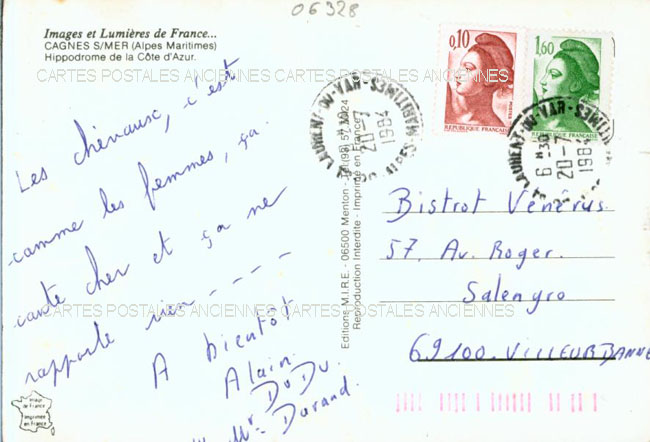 06328
Images et Lumières de France...
CAGNES S/MER (Alpes Maritimes)
Hippodrome de la Côte d'Azur.
CARTES POSTALES ANCIENNES CARTES POSTALES ANCIENNES CARTES POSTALES ANCIENNES
Les chevaux, c'est
comme les femmes, ça
coute cher et ça ne
rapporte rien ----
A bientôt
Alain.
DuDu.
Mr Durand.
Editions M.I.R.E. - 06500 Menton - Tél (93) 57
Reproduction Interdite - Imprimé en France
0,10
REPUBLIQUE FRANÇAISE
1,60
REPUBLIQUE FRANÇAISE
ST LAURENT-DU-VAR
ALPES-MARITIMES
20-7
1984
ST LAURENT-DU-VAR
6 H 30
20-7
1984
Bistrot Vénérus
57, Av. Roger.
Salengro
69100 - VILLEURBANNE
CARTES POSTALES ANCIENNES CARTES POSTALES ANCIENNES CARTES POSTALES ANCIENNES
Image
de France
Imprimée
en France